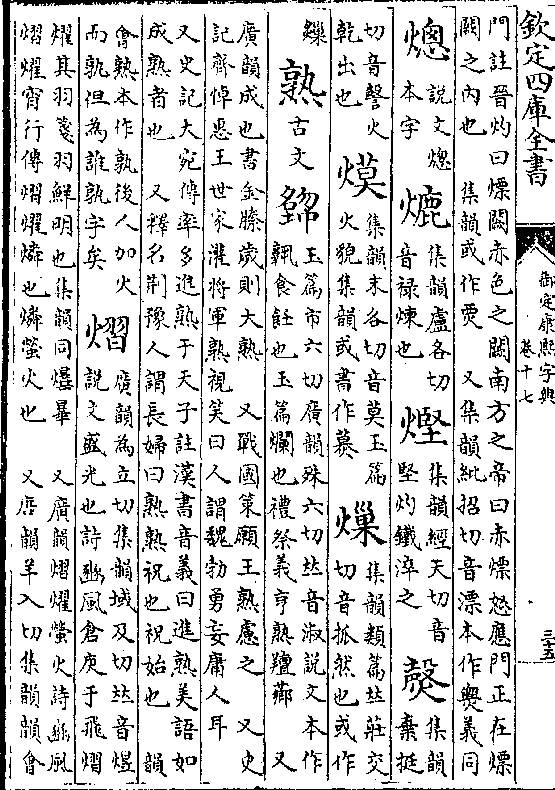 欽定四庫全書
御定康熙字典
卷十七
三十五
門註晉灼曰熛闕赤色之闕南方之帝曰赤熛怒應門正在熛
闕之內也 集韻或作 又集韻紕招切音漂本作義同
熜 說文熜
本字
熝 集韻盧各切
音祿煉也
熞 集韻經天切音
堅灼鐵淬之
集韻
棄挺
切音謦火
乾出也
㷬 集韻末各切音莫玉篇
火貌集韻或書作慕
㷅 集韻類篇𠀤莊交
切音抓然也或作
熟 古文 玉篇市六切廣韻殊六切𠀤音淑說文本作
食飪也玉篇爛也禮祭義亨熟羶薌 又
廣韻成也書金縢歲則大熟 又戰國策願王熟慮之 又史
記齊悼惠王世家灌將軍熟視笑曰人謂魏勃勇妄庸人耳
又史記大宛傳率多進熟于天子註漢書音義曰進熟美語如
成熟者也 又釋名荆豫人謂長婦曰熟熟祝也祝始也 韻
會熟本作孰後人加火
而孰但為誰孰字矣
熠 廣韻為立切集韻域及切𠀤音煜
說文盛光也詩豳風倉庚于飛熠
燿其羽箋羽鮮明也集韻同 又廣韻熠燿螢火詩豳風
熠燿宵行傳熠燿燐也燐螢火也 又唐韻羊入切集韻韻會